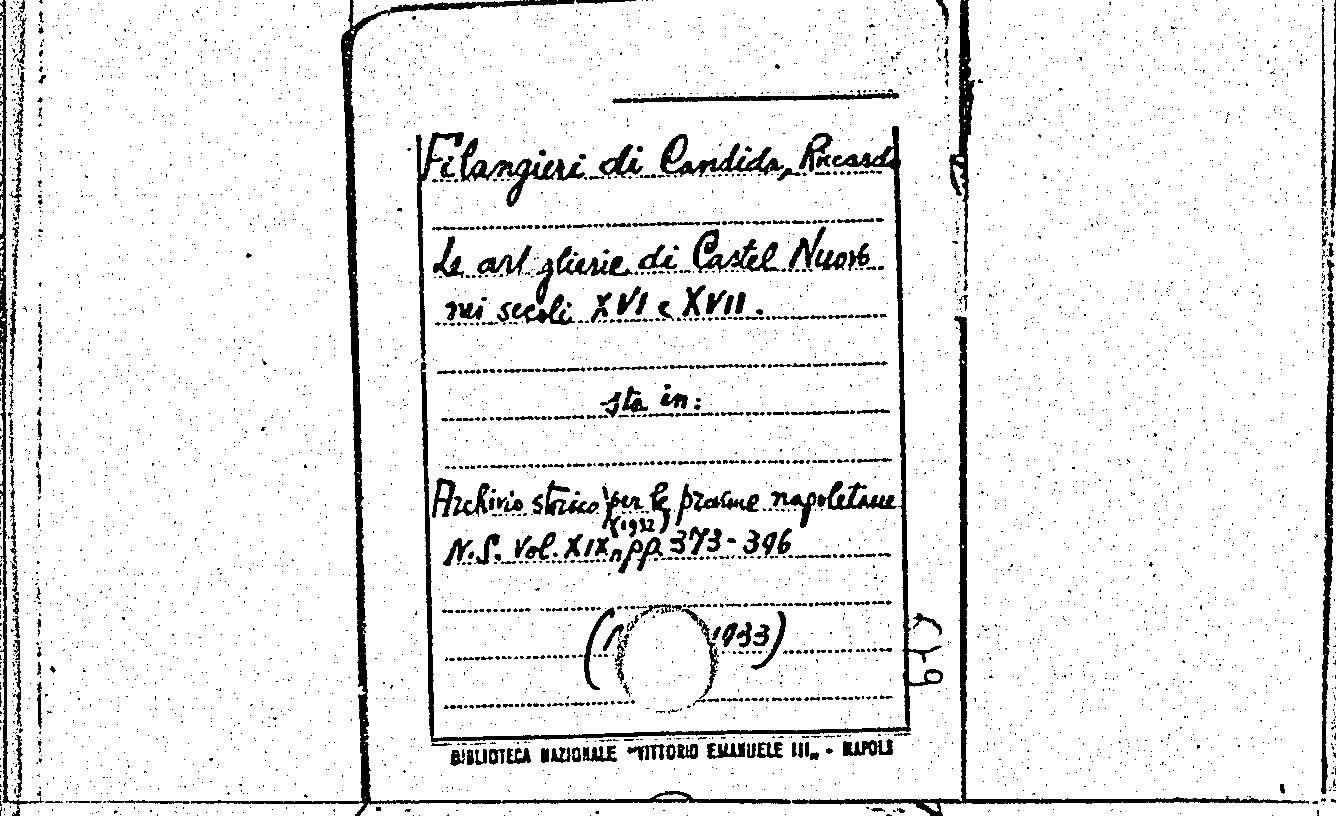 Filangieri di Candida, Riccardo
Le artiglierie di Castel Nuovo
nei secoli XVI e XVII.
sta in:
Archivio storico per le provine napoletane
(1932)
N.S. Vol. XIX, pp. 373-396
( 1933)
BIBLIOTECA NAZIONALE "VITTORIO EMANUELE III„ - NAPOLI